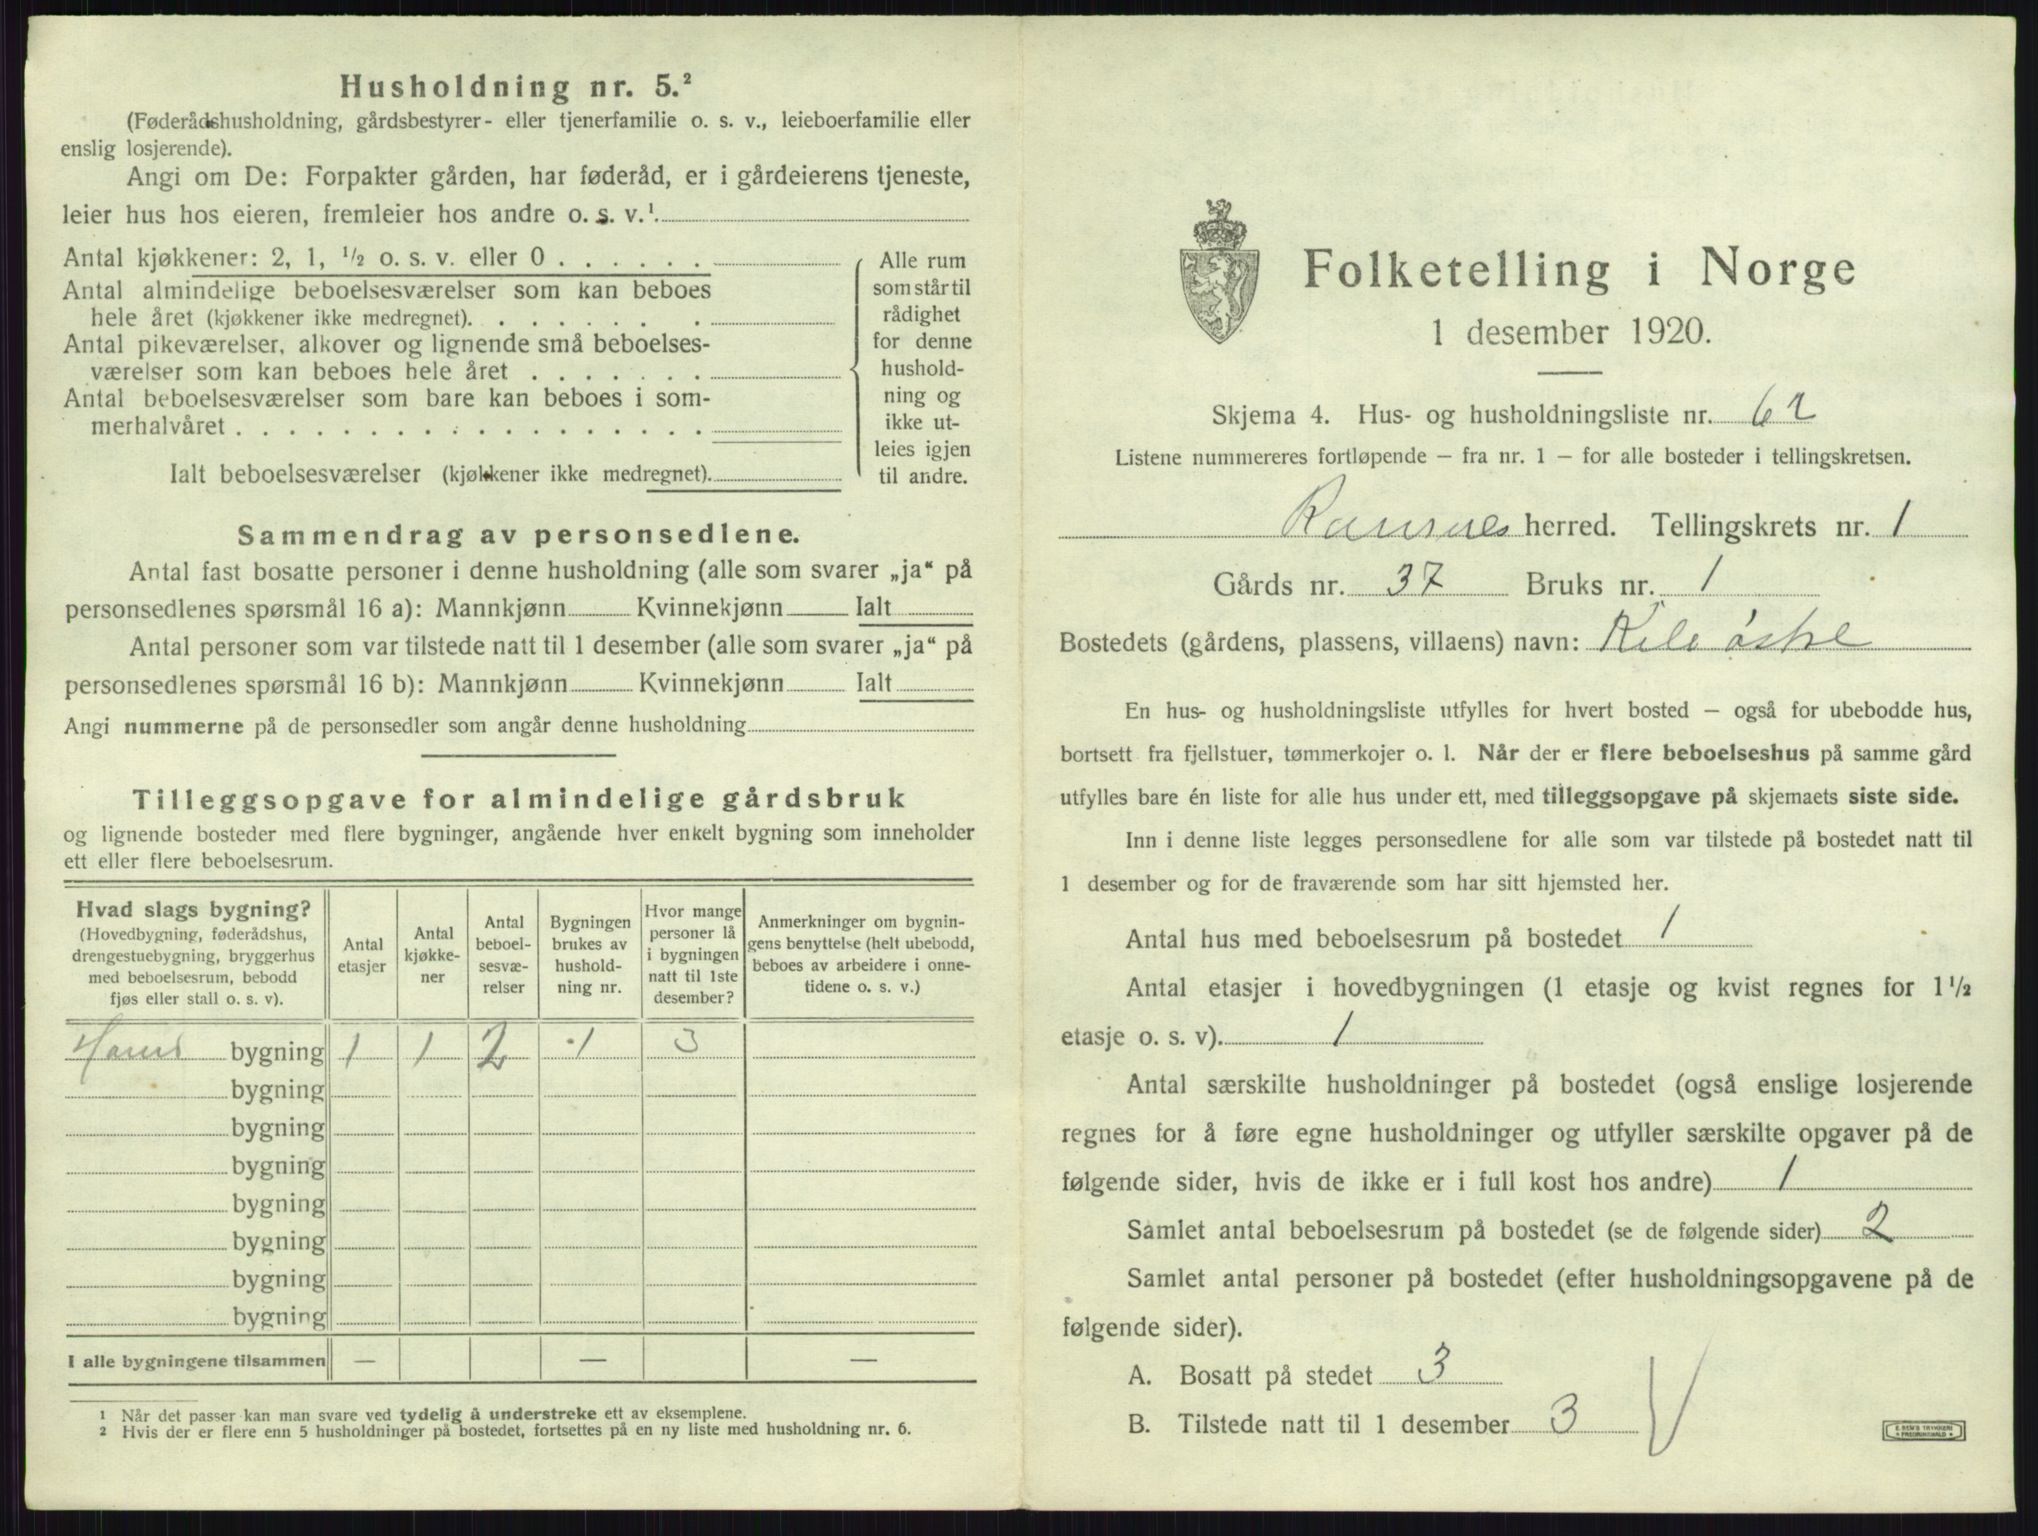 Husholdning nr. 5.²
(Føderådshusholdning, gårdsbestyrer- eller tjenerfamilie o. s. v., leieboerfamilie eller
enslig losjerende).
Angi om De: Forpakter gården, har føderåd, er i gårdeierens tjeneste,
leier hus hos eieren, fremleier hos andre o. s. v.¹
Antal kjøkkener: 2, 1, ½ o. s. v. eller 0 . . . . . .
Antal almindelige beboelsesværelser som kan beboes
hele året (kjøkkener ikke medregnet). . . . . . . .
Antal pikeværelser, alkover og lignende små beboelses-
værelser som kan beboes hele året . . . . . . .
Antal beboelsesværelser som bare kan beboes i som-
merhalvåret . . . . . . . . . . . . . . . . . .
Ialt beboelsesværelser (kjøkkener ikke medregnet).
Alle rum
som står til
rådighet
for denne
hushold-
ning og
ikke ut-
leies igjen
til andre.
Sammendrag av personsedlene.
Antal fast bosatte personer i denne husholdning (alle som svarer „ja“ på
personsedlenes spørsmål 16 a): Mannkjønn Kvinnekjønn Ialt
Antal personer som var tilstede natt til 1 desember (alle som svarer „ja“ på
personsedlenes spørsmål 16 b): Mannkjønn Kvinnekjønn Ialt
Angi nummerne på de personsedler som angår denne husholdning
Tilleggsopgave for almindelige gårdsbruk
og lignende bosteder med flere bygninger, angående hver enkelt bygning som inneholder
ett eller flere beboelsesrum.
Hvad slags bygning?
(Hovedbygning, føderådshus,
drengestuebygning, bryggerhus
med beboelsesrum, bebodd
fjøs eller stall o. s. v).
Antal
etasjer
Antal
kjøkke-
ner
Antal
beboel-
sesvæ-
relser
Bygningen
brukes av
hushold-
ning nr.
Hvor mange
personer lå
i bygningen
natt til 1ste
desember?
Anmerkninger om bygnin-
gens benyttelse (helt ubebodd,
beboes av arbeidere i onne-
tidene o. s. v.)
bygning 1 1 2 1 3
bygning
bygning
bygning
bygning
bygning
bygning
bygning
I alle bygningene tilsammen — — —
1 Når det passer kan man svare ved tydelig å understreke ett av eksemplene.
2 Hvis der er flere enn 5 husholdninger på bostedet, fortsettes på en ny liste med husholdning nr. 6.
Folketelling i Norge
1 desember 1920.
Skjema 4. Hus- og husholdningsliste nr. 62
Listene nummereres fortløpende – fra nr. 1 – for alle bosteder i tellingskretsen.
Ramnes herred. Tellingskrets nr. 1
Gårds nr. 37 Bruks nr. 1
Bostedets (gårdens, plassens, villaens) navn: Kile østre
En hus- og husholdningsliste utfylles for hvert bosted – også for ubebodde hus,
bortsett fra fjellstuer, tømmerkojer o. l. Når der er flere beboelseshus på samme gård
utfylles bare én liste for alle hus under ett, med tilleggsopgave på skjemaets siste side.
Inn i denne liste legges personsedlene for alle som var tilstede på bostedet natt til
1 desember og for de fraværende som har sitt hjemsted her.
Antal hus med beboelsesrum på bostedet 1
Antal etasjer i hovedbygningen (1 etasje og kvist regnes for 1½
etasje o. s. v). 1
Antal særskilte husholdninger på bostedet (også enslige losjerende
regnes for å føre egne husholdninger og utfyller særskilte opgaver på de
følgende sider, hvis de ikke er i full kost hos andre) 1
Samlet antal beboelsesrum på bostedet (se de følgende sider) 2
Samlet antal personer på bostedet (efter husholdningsopgavene på de
følgende sider).
A. Bosatt på stedet 3
B. Tilstede natt til 1 desember 3